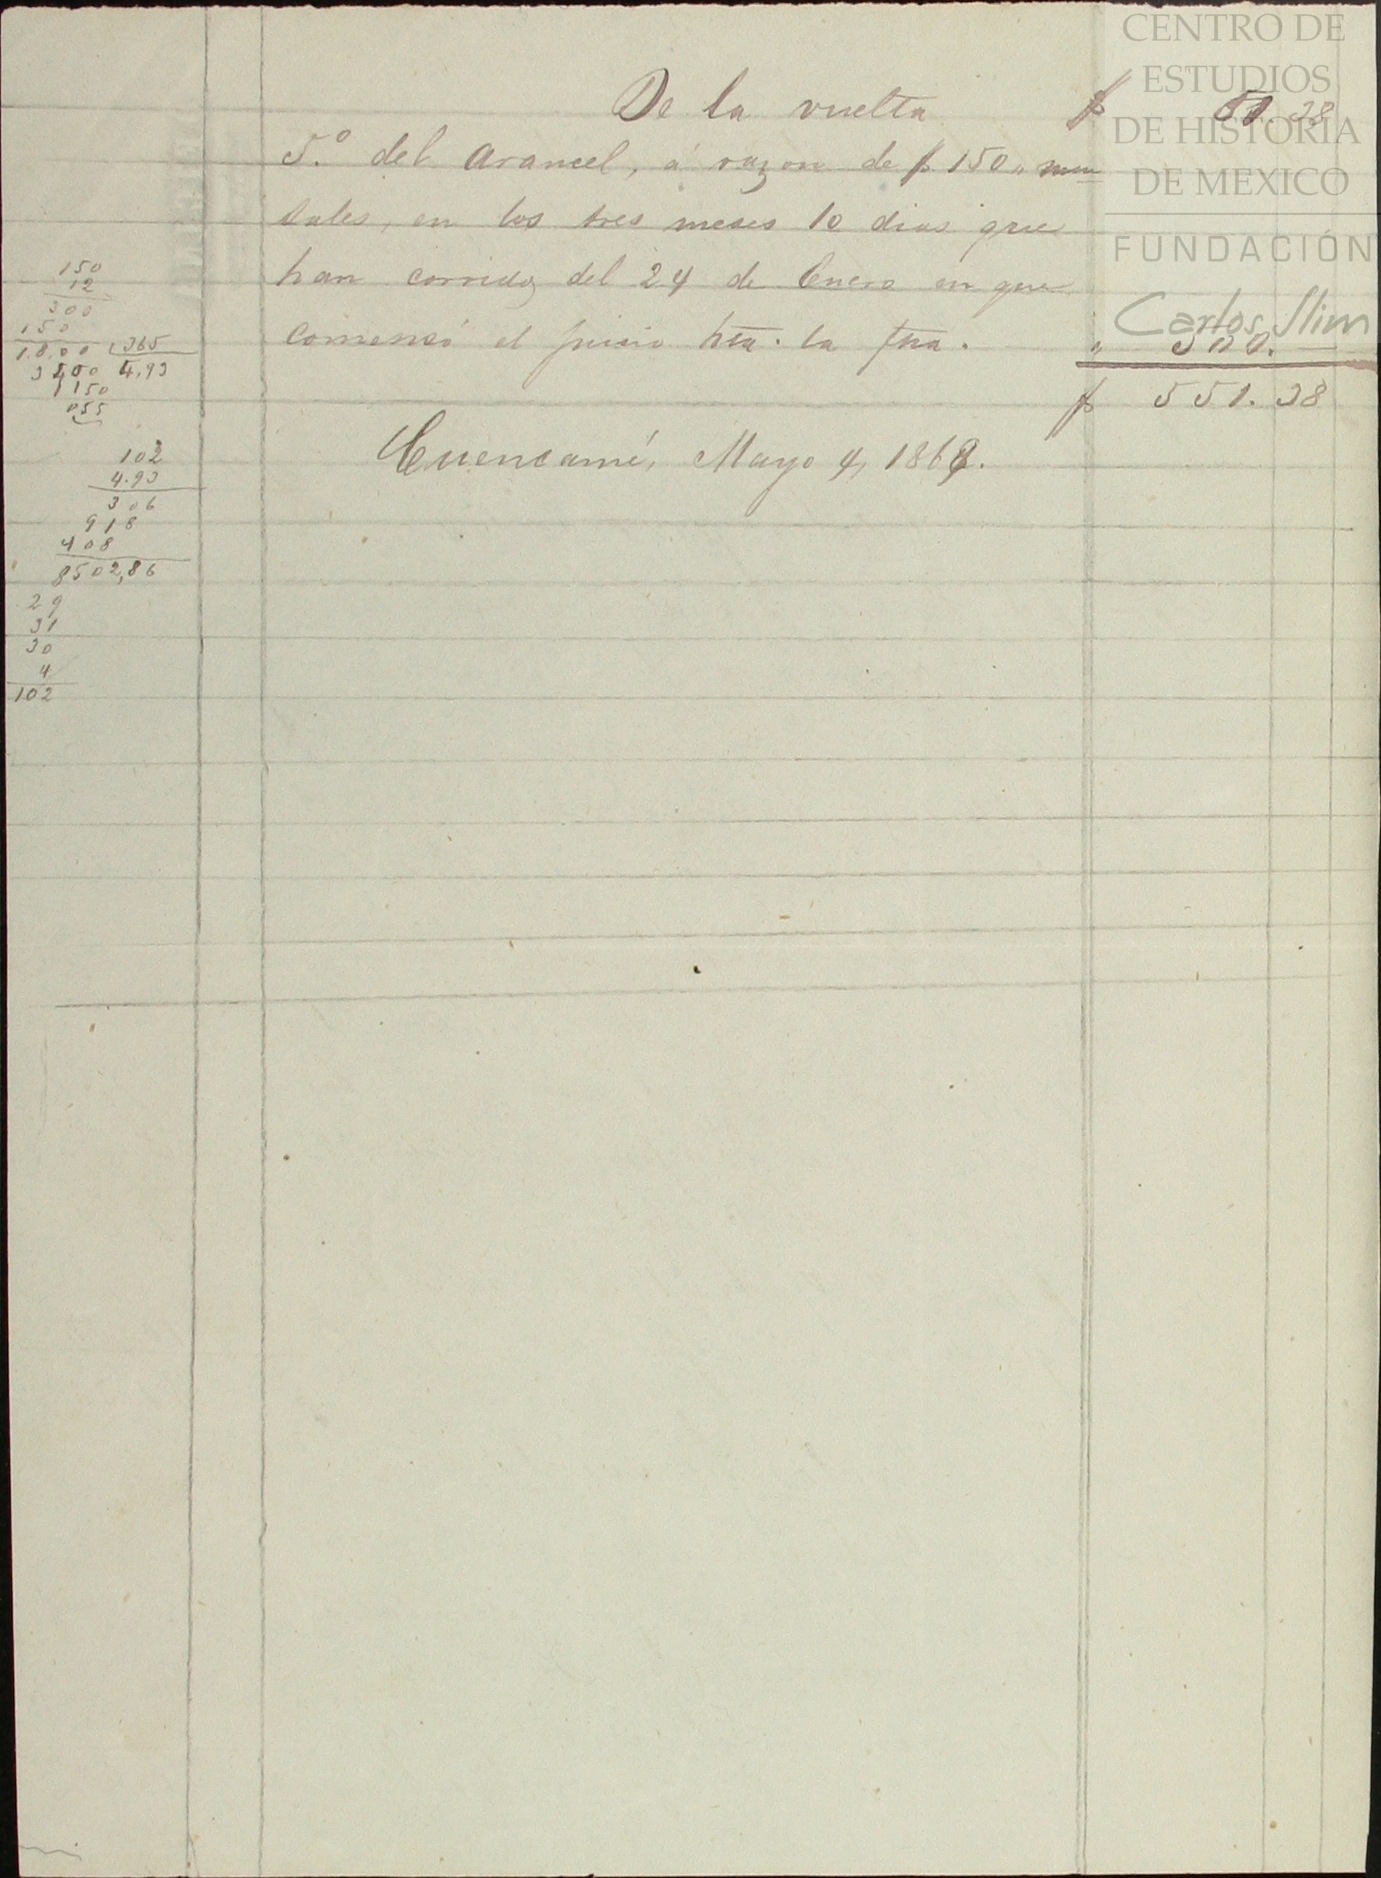 CENTRO DE
ESTUDIOS
DE HISTORIA
DE MEXICO
FUNDACIÓN
Carlos Slim
De la vuelta $ 51.38
5.º del Arancel, á razon de $ 150 „ men
suales, en los tres meses 10 dias que
han corrido, del 24 de Enero en que
comensó el juicio hta. la fha. „ 500.
$ 551.38
Cuencamé, Mayo 4, 1868.
150
12
300
150
1.8.00 365
3400 4,93
1150
055
102
4.93
306
918
408
502,86
29
31
30
4
102